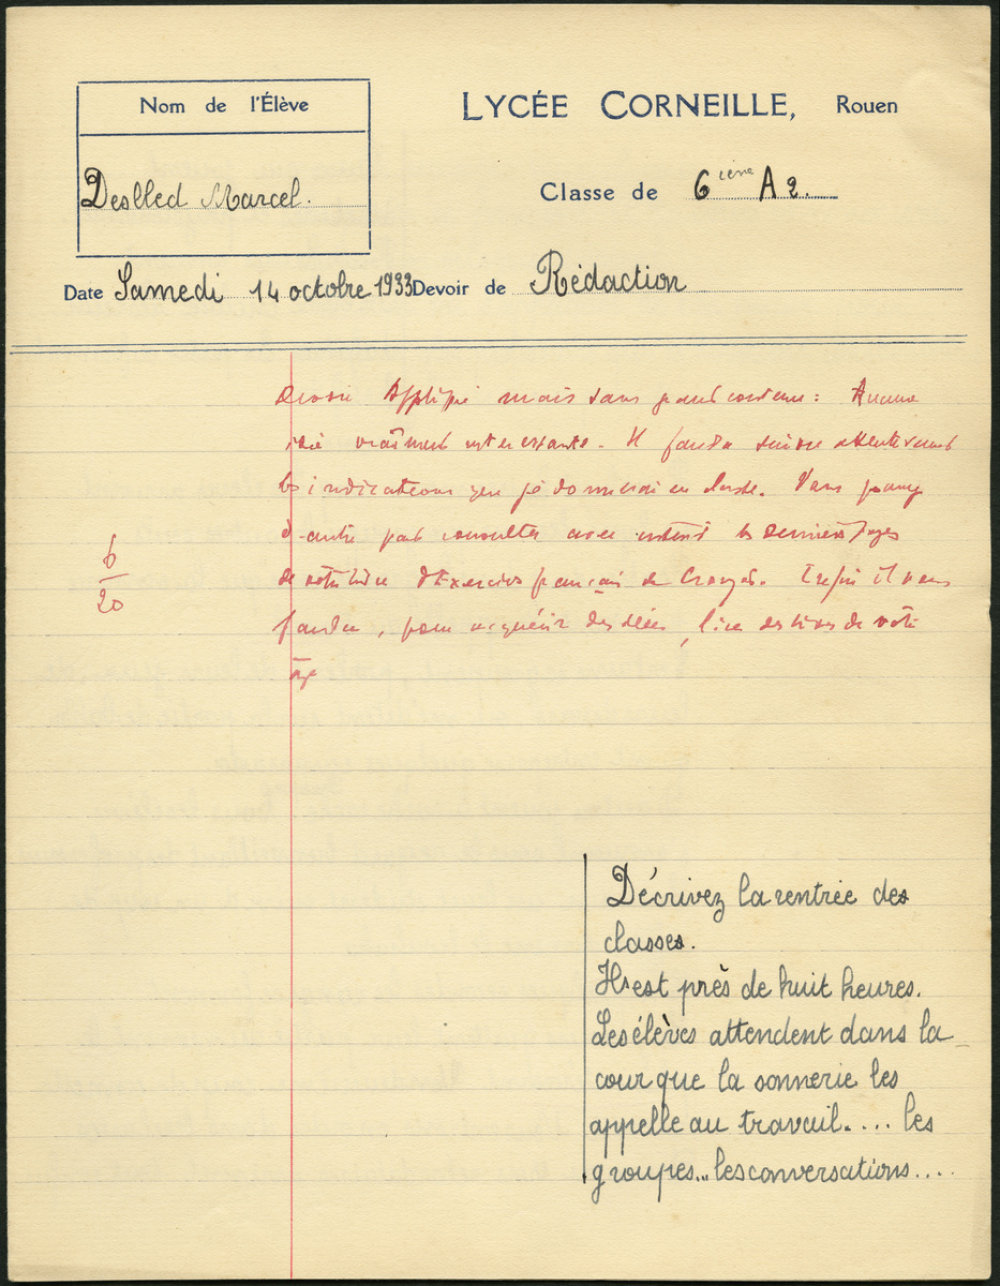 Nom de l'Élève
LYCÉE CORNEILLE, Rouen
Marcel.
Classe de 6ième A 2.
Date Samedi 14 octobre 1933 Devoir de Rédaction
Devoir appliqué mais sans grand contenu : Aucune
idée vraiment intéressante. Il faudra suivre attentivement
les indications que je donnerai en classe. Vous pouvez
d'autre part consulter avec intérêt les dernières pages
de votre livre d'Exercices français de Crouzet. Enfin il vous
faudra, pour acquérir des idées, lire des livres de votre
âge
6
20
Décrivez la rentrée des
classes.
Il est près de huit heures.
Les élèves attendent dans la
cour que la sonnerie les
appelle au travail.... les
groupes... les conversations....